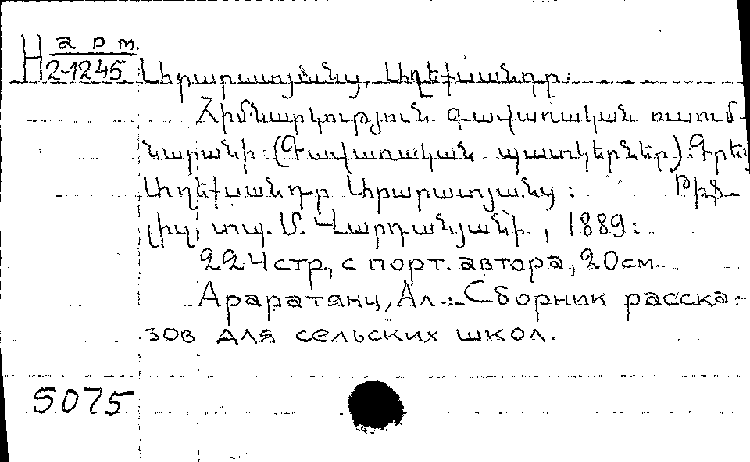 Н арт.
2-1245 Արարատյանց, Աղեքսանդր:
Հիմնարկություն գավառական ուսում-
նարանի: (Գավառական պատկերներ): Գրեց
Աղեքսանդր Արարատյանց: Թիֆ-
լիզ, տպ. Մ. Վարդանյանի, 1889:
224 стр., с порт. автора, 20 см
Араратянц, Ал.: Сборник расска-
зов для сельских школ.
5075